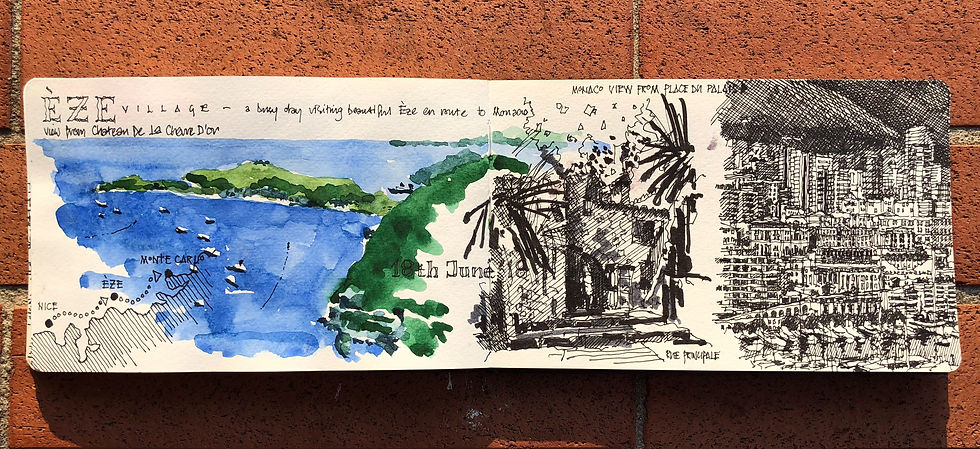 ÈZE VILLAGE – a busy day visiting beautiful Èze en route to Monaco
view from Chateau De La Chevre D'or
MONACO VIEW FROM PLACE DU PALAIS
MONTE CARLO
ÈZE
NICE
18th June 18
RUE PRINCIPALE